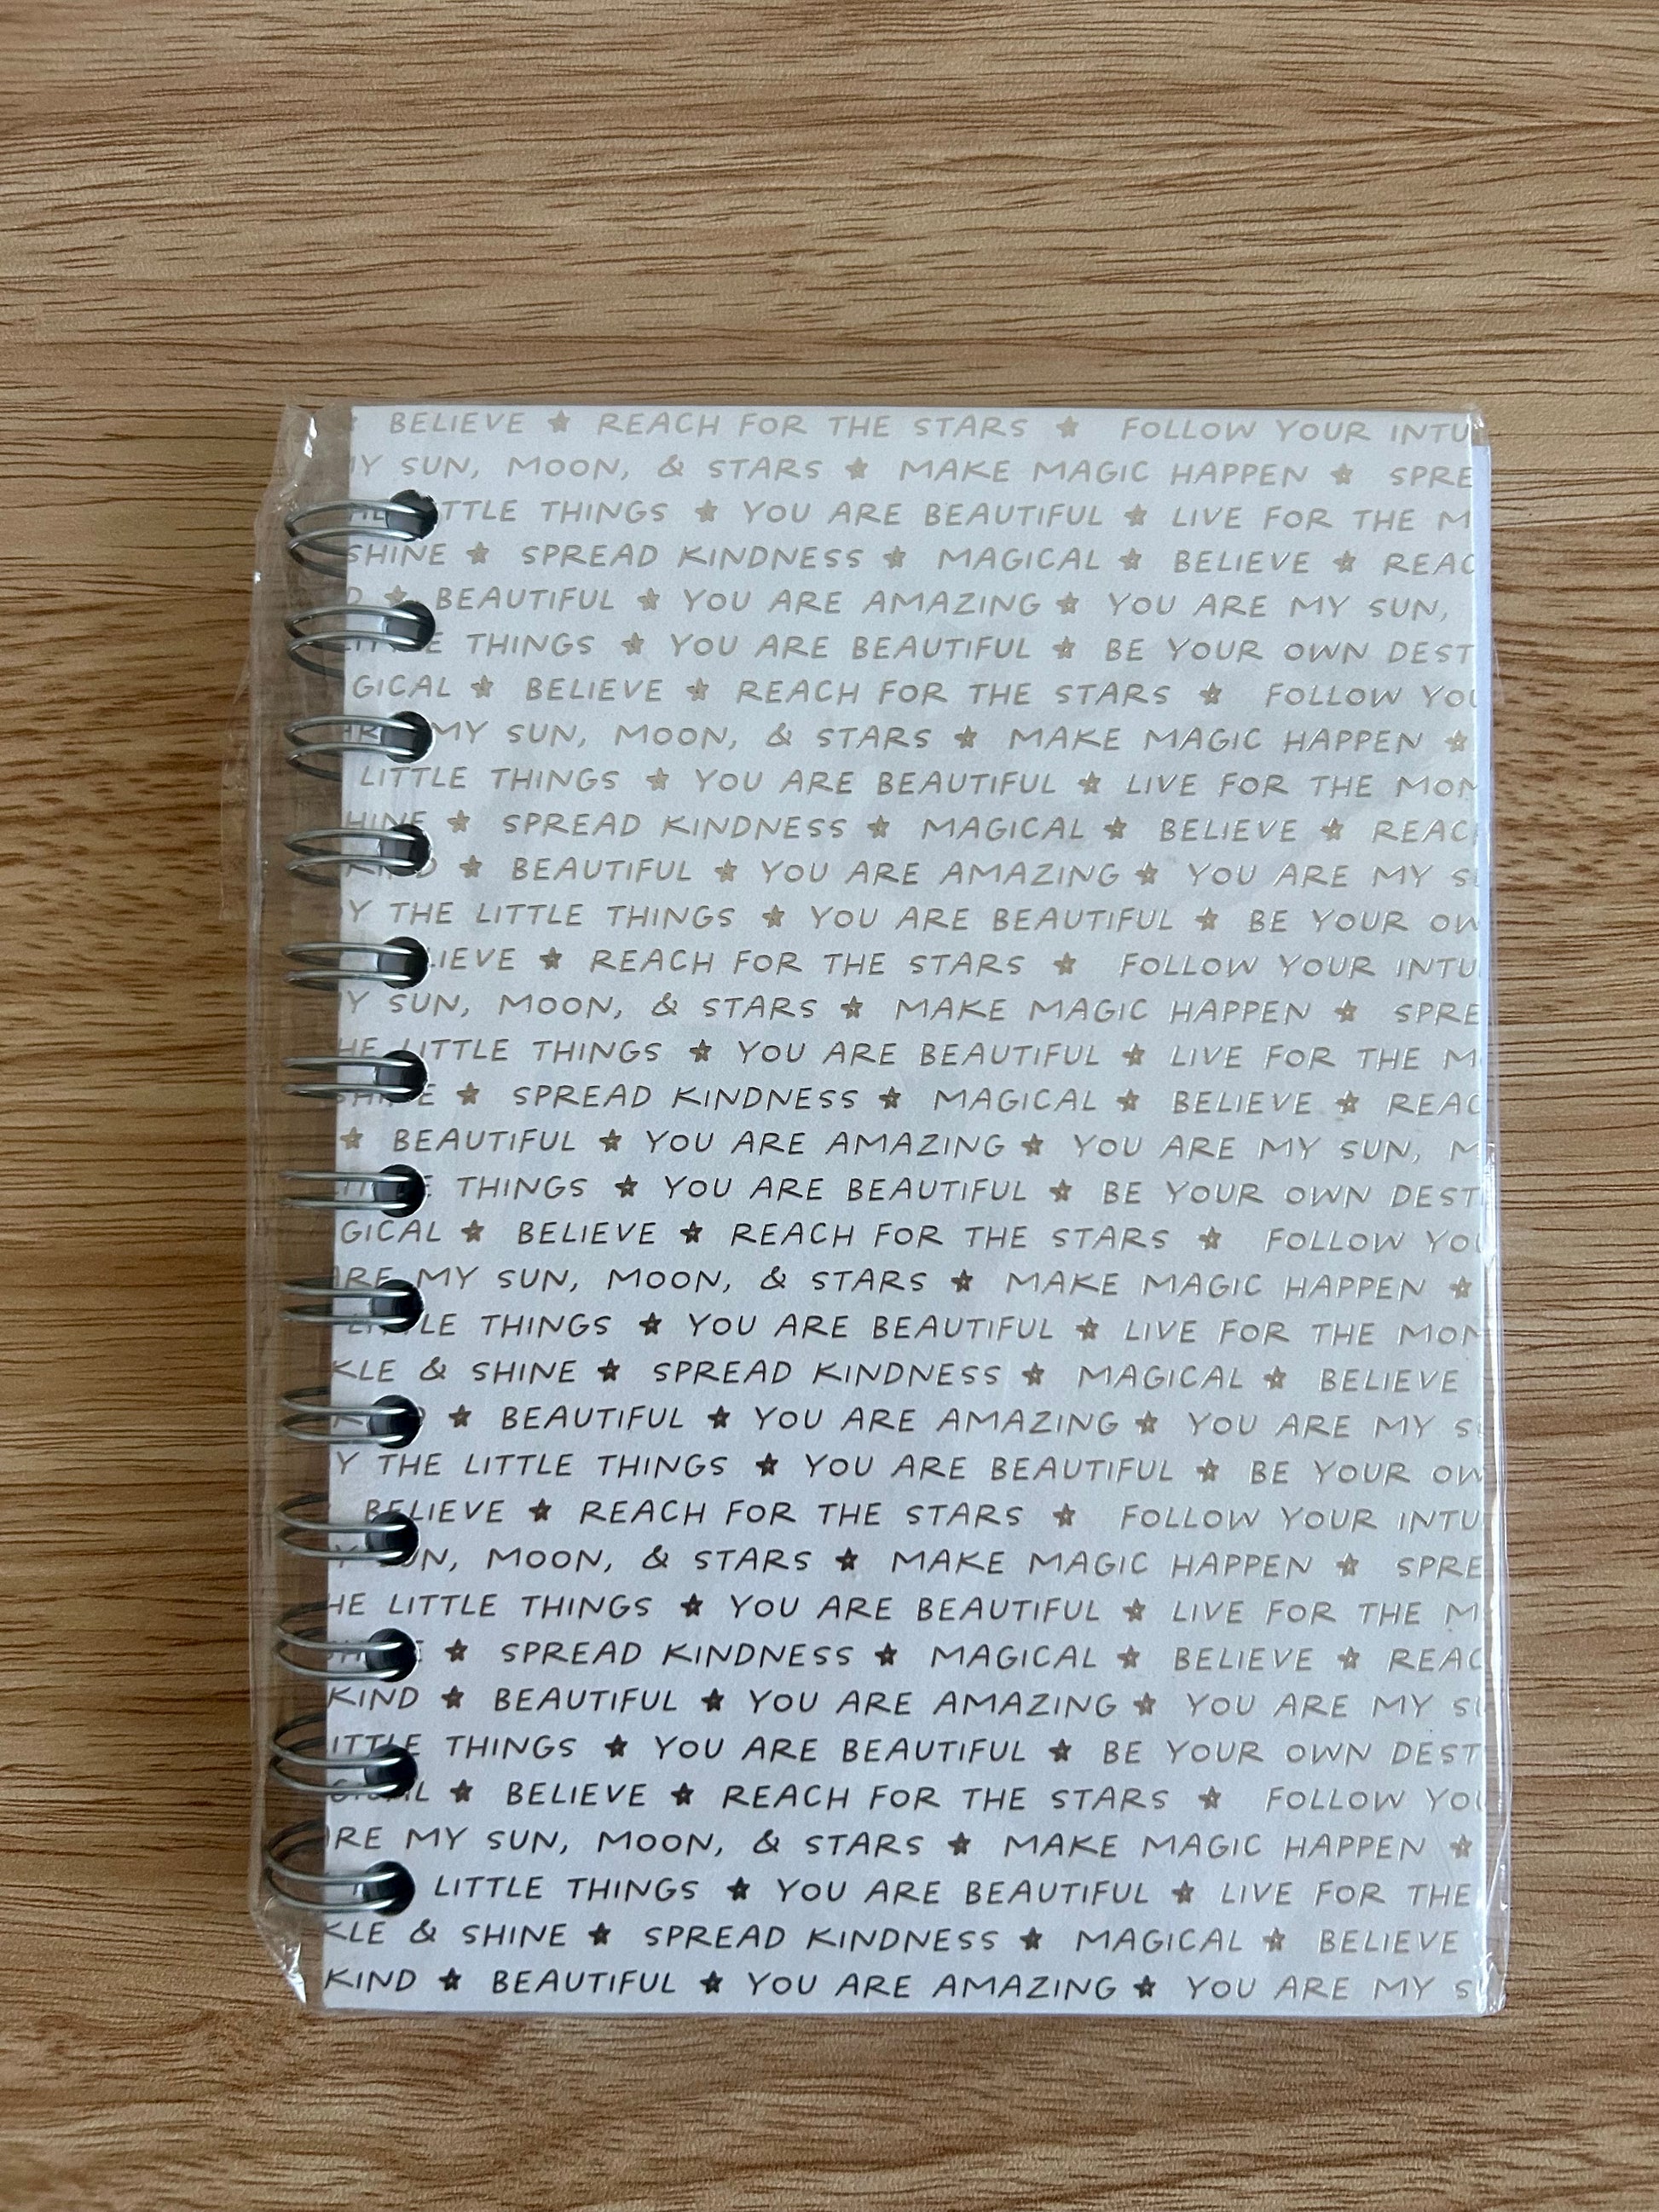 BELIEVE ★ REACH FOR THE STARS ★ FOLLOW YOUR INTU
MY SUN, MOON, & STARS ★ MAKE MAGIC HAPPEN ★ SPRE
TTLE THINGS ★ YOU ARE BEAUTIFUL ★ LIVE FOR THE M
SHINE ★ SPREAD KINDNESS ★ MAGICAL ★ BELIEVE ★ REAC
D ★ BEAUTIFUL ★ YOU ARE AMAZING ★ YOU ARE MY SUN,
E THINGS ★ YOU ARE BEAUTIFUL ★ BE YOUR OWN DEST
GICAL ★ BELIEVE ★ REACH FOR THE STARS ★ FOLLOW YOU
MY SUN, MOON, & STARS ★ MAKE MAGIC HAPPEN ★
LITTLE THINGS ★ YOU ARE BEAUTIFUL ★ LIVE FOR THE MOM
HINE ★ SPREAD KINDNESS ★ MAGICAL ★ BELIEVE ★ REACH
KIND ★ BEAUTIFUL ★ YOU ARE AMAZING ★ YOU ARE MY SU
Y THE LITTLE THINGS ★ YOU ARE BEAUTIFUL ★ BE YOUR OW
LIEVE ★ REACH FOR THE STARS ★ FOLLOW YOUR INTU
Y SUN, MOON, & STARS ★ MAKE MAGIC HAPPEN ★ SPRE
HE LITTLE THINGS ★ YOU ARE BEAUTIFUL ★ LIVE FOR THE M
SHINE ★ SPREAD KINDNESS ★ MAGICAL ★ BELIEVE ★ REAC
★ BEAUTIFUL ★ YOU ARE AMAZING ★ YOU ARE MY SUN, M
E THINGS ★ YOU ARE BEAUTIFUL ★ BE YOUR OWN DEST
GICAL ★ BELIEVE ★ REACH FOR THE STARS ★ FOLLOW YOU
ARE MY SUN, MOON, & STARS ★ MAKE MAGIC HAPPEN ★
LITTLE THINGS ★ YOU ARE BEAUTIFUL ★ LIVE FOR THE MOM
KLE & SHINE ★ SPREAD KINDNESS ★ MAGICAL ★ BELIEVE
★ BEAUTIFUL ★ YOU ARE AMAZING ★ YOU ARE MY S
Y THE LITTLE THINGS ★ YOU ARE BEAUTIFUL ★ BE YOUR OW
BELIEVE ★ REACH FOR THE STARS ★ FOLLOW YOUR INTU
Y SUN, MOON, & STARS ★ MAKE MAGIC HAPPEN ★ SPRE
HE LITTLE THINGS ★ YOU ARE BEAUTIFUL ★ LIVE FOR THE M
★ SPREAD KINDNESS ★ MAGICAL ★ BELIEVE ★ REAC
KIND ★ BEAUTIFUL ★ YOU ARE AMAZING ★ YOU ARE MY SU
ITTLE THINGS ★ YOU ARE BEAUTIFUL ★ BE YOUR OWN DEST
GICAL ★ BELIEVE ★ REACH FOR THE STARS ★ FOLLOW YOU
ARE MY SUN, MOON, & STARS ★ MAKE MAGIC HAPPEN ★
LITTLE THINGS ★ YOU ARE BEAUTIFUL ★ LIVE FOR THE
KLE & SHINE ★ SPREAD KINDNESS ★ MAGICAL ★ BELIEVE
KIND ★ BEAUTIFUL ★ YOU ARE AMAZING ★ YOU ARE MY S